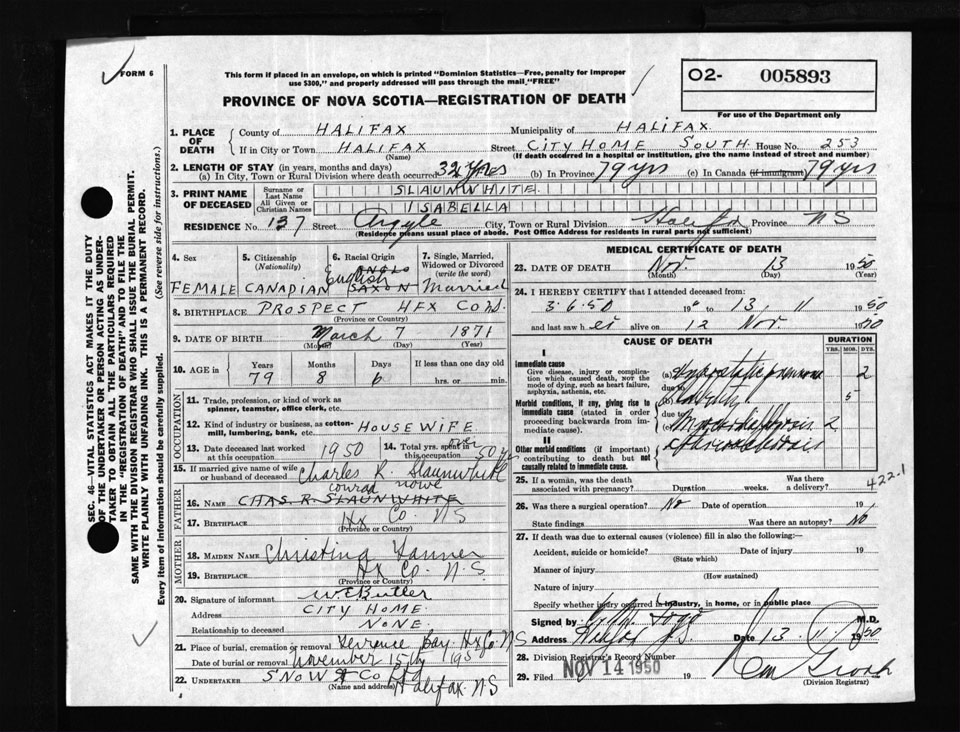 FORM 6
This form if placed in an envelope, on which is printed "Dominion Statistics—Free, penalty for improper
use $300," and properly addressed will pass through the mail, "FREE"
PROVINCE OF NOVA SCOTIA—REGISTRATION OF DEATH
O2- 005893
For use of the Department only
SEC. 46—VITAL STATISTICS ACT MAKES IT THE DUTY
OF THE UNDERTAKER OR PERSON ACTING AS UNDER-
TAKER TO OBTAIN ALL THE PARTICULARS REQUIRED
IN THE "REGISTRATION OF DEATH" AND TO FILE THE
SAME WITH THE DIVISION REGISTRAR WHO SHALL ISSUE THE BURIAL PERMIT.
WRITE PLAINLY WITH UNFADING INK. THIS IS A PERMANENT RECORD.
Every item of information should be carefully supplied. (See reverse side for instructions.)
1. PLACE OF DEATH
County of HALIFAX Municipality of HALIFAX
If in City or Town HALIFAX Street CITY HOME SOUTH House No. 253
(Name) (If death occurred in a hospital or institution, give the name instead of street and number)
2. LENGTH OF STAY (in years, months and days)
(a) In City, Town or Rural Division where death occurred 32 yrs (b) In Province 79 yrs (c) In Canada (if immigrant) 79 yrs
3. PRINT NAME OF DECEASED
Surname or Last Name SLAUNWHITE
All Given or Christian Names ISABELLA
RESIDENCE No. 137 Street Argyle City, Town or Rural Division Halifax Province NS
(Residence means usual place of abode. Post Office Address for residents in rural parts not sufficient)
4. Sex FEMALE
5. Citizenship (Nationality) CANADIAN
6. Racial Origin English ANGLO SAXON
7. Single, Married, Widowed or Divorced (write the word) Married
8. BIRTHPLACE PROSPECT HFX Co NS
(Province or Country)
9. DATE OF BIRTH March 7 1871
(Month) (Day) (Year)
10. AGE in Years 79 Months 8 Days 6 If less than one day old hrs. or min.
OCCUPATION
11. Trade, profession, or kind of work as spinner, teamster, office clerk, etc.
12. Kind of industry or business, as cotton-mill, lumbering, bank, etc. HOUSEWIFE
13. Date deceased last worked at this occupation 1950
14. Total yrs. spent in this occupation over 50 yrs
15. If married give name of wife or husband of deceased Charles R. Slaunwhite
FATHER
conrad nowe
16. NAME CHAS. R. SLAUNWHITE
17. BIRTHPLACE Hx Co. NS
(Province or Country)
MOTHER
18. MAIDEN NAME Christina Tanner
19. BIRTHPLACE Hx Co. N.S.
(Province or Country)
20. Signature of informant W E Butler
Address CITY HOME
Relationship to deceased NONE
21. Place of burial, cremation or removal Terrence Bay Hx Co NS
Date of burial or removal November 15th 1950
22. UNDERTAKER SNOW & Co Ltd
(Name and address) Halifax NS
MEDICAL CERTIFICATE OF DEATH
23. DATE OF DEATH Nov. 13 1950
(Month) (Day) (Year)
24. I HEREBY CERTIFY that I attended deceased from:
3.6.50 to 13 11 1950
and last saw her alive on 12 Nov. 1950
CAUSE OF DEATH
DURATION
YRS. MOS. DYS.
I
Immediate cause
Give disease, injury or complication which caused death, not the mode of dying, such as heart failure, asphyxia, asthenia, etc.
(a) Hypostatic pneumonia 2
due to
Morbid conditions, if any, giving rise to immediate cause (stated in order proceeding backwards from immediate cause).
(b) 5
due to
(c) 2
II
Other morbid conditions (if important) contributing to death but not causally related to immediate cause.
25. If a woman, was the death associated with pregnancy? Duration weeks. Was there a delivery?
422.1
26. Was there a surgical operation? No Date of operation 19
State findings Was there an autopsy? No
27. If death was due to external causes (violence) fill in also the following:—
Accident, suicide or homicide? Date of injury 19
(State which)
Manner of injury
(How sustained)
Nature of injury
Specify whether injury occurred in industry, in home, or in public place
Signed by M.D.
Address Halifax N.S. Date 13 11 1950
28. Division Registrar's Record Number
29. Filed NOV 14 1950 19
(Division Registrar)